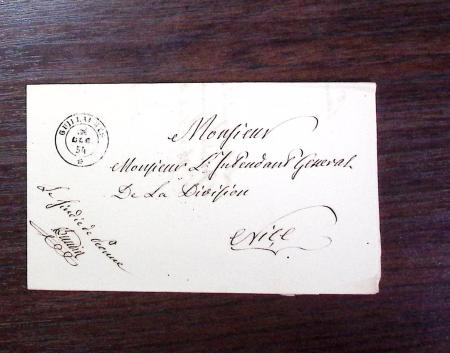 GUILLAUMES
26
DEC
54
Monsieur
Monsieur L'Intendant General
De La Division
Nice
Le Sindic de